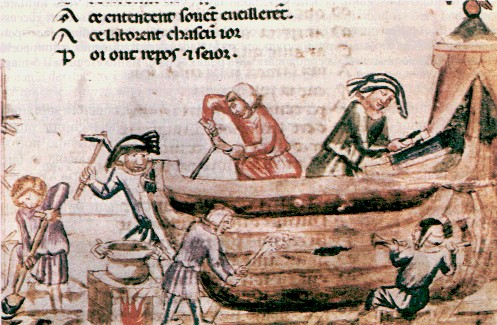 A ce ententent souēt eueillerēt.
A ce laborent chascū ior
P oi ont repos ⁊ seior.